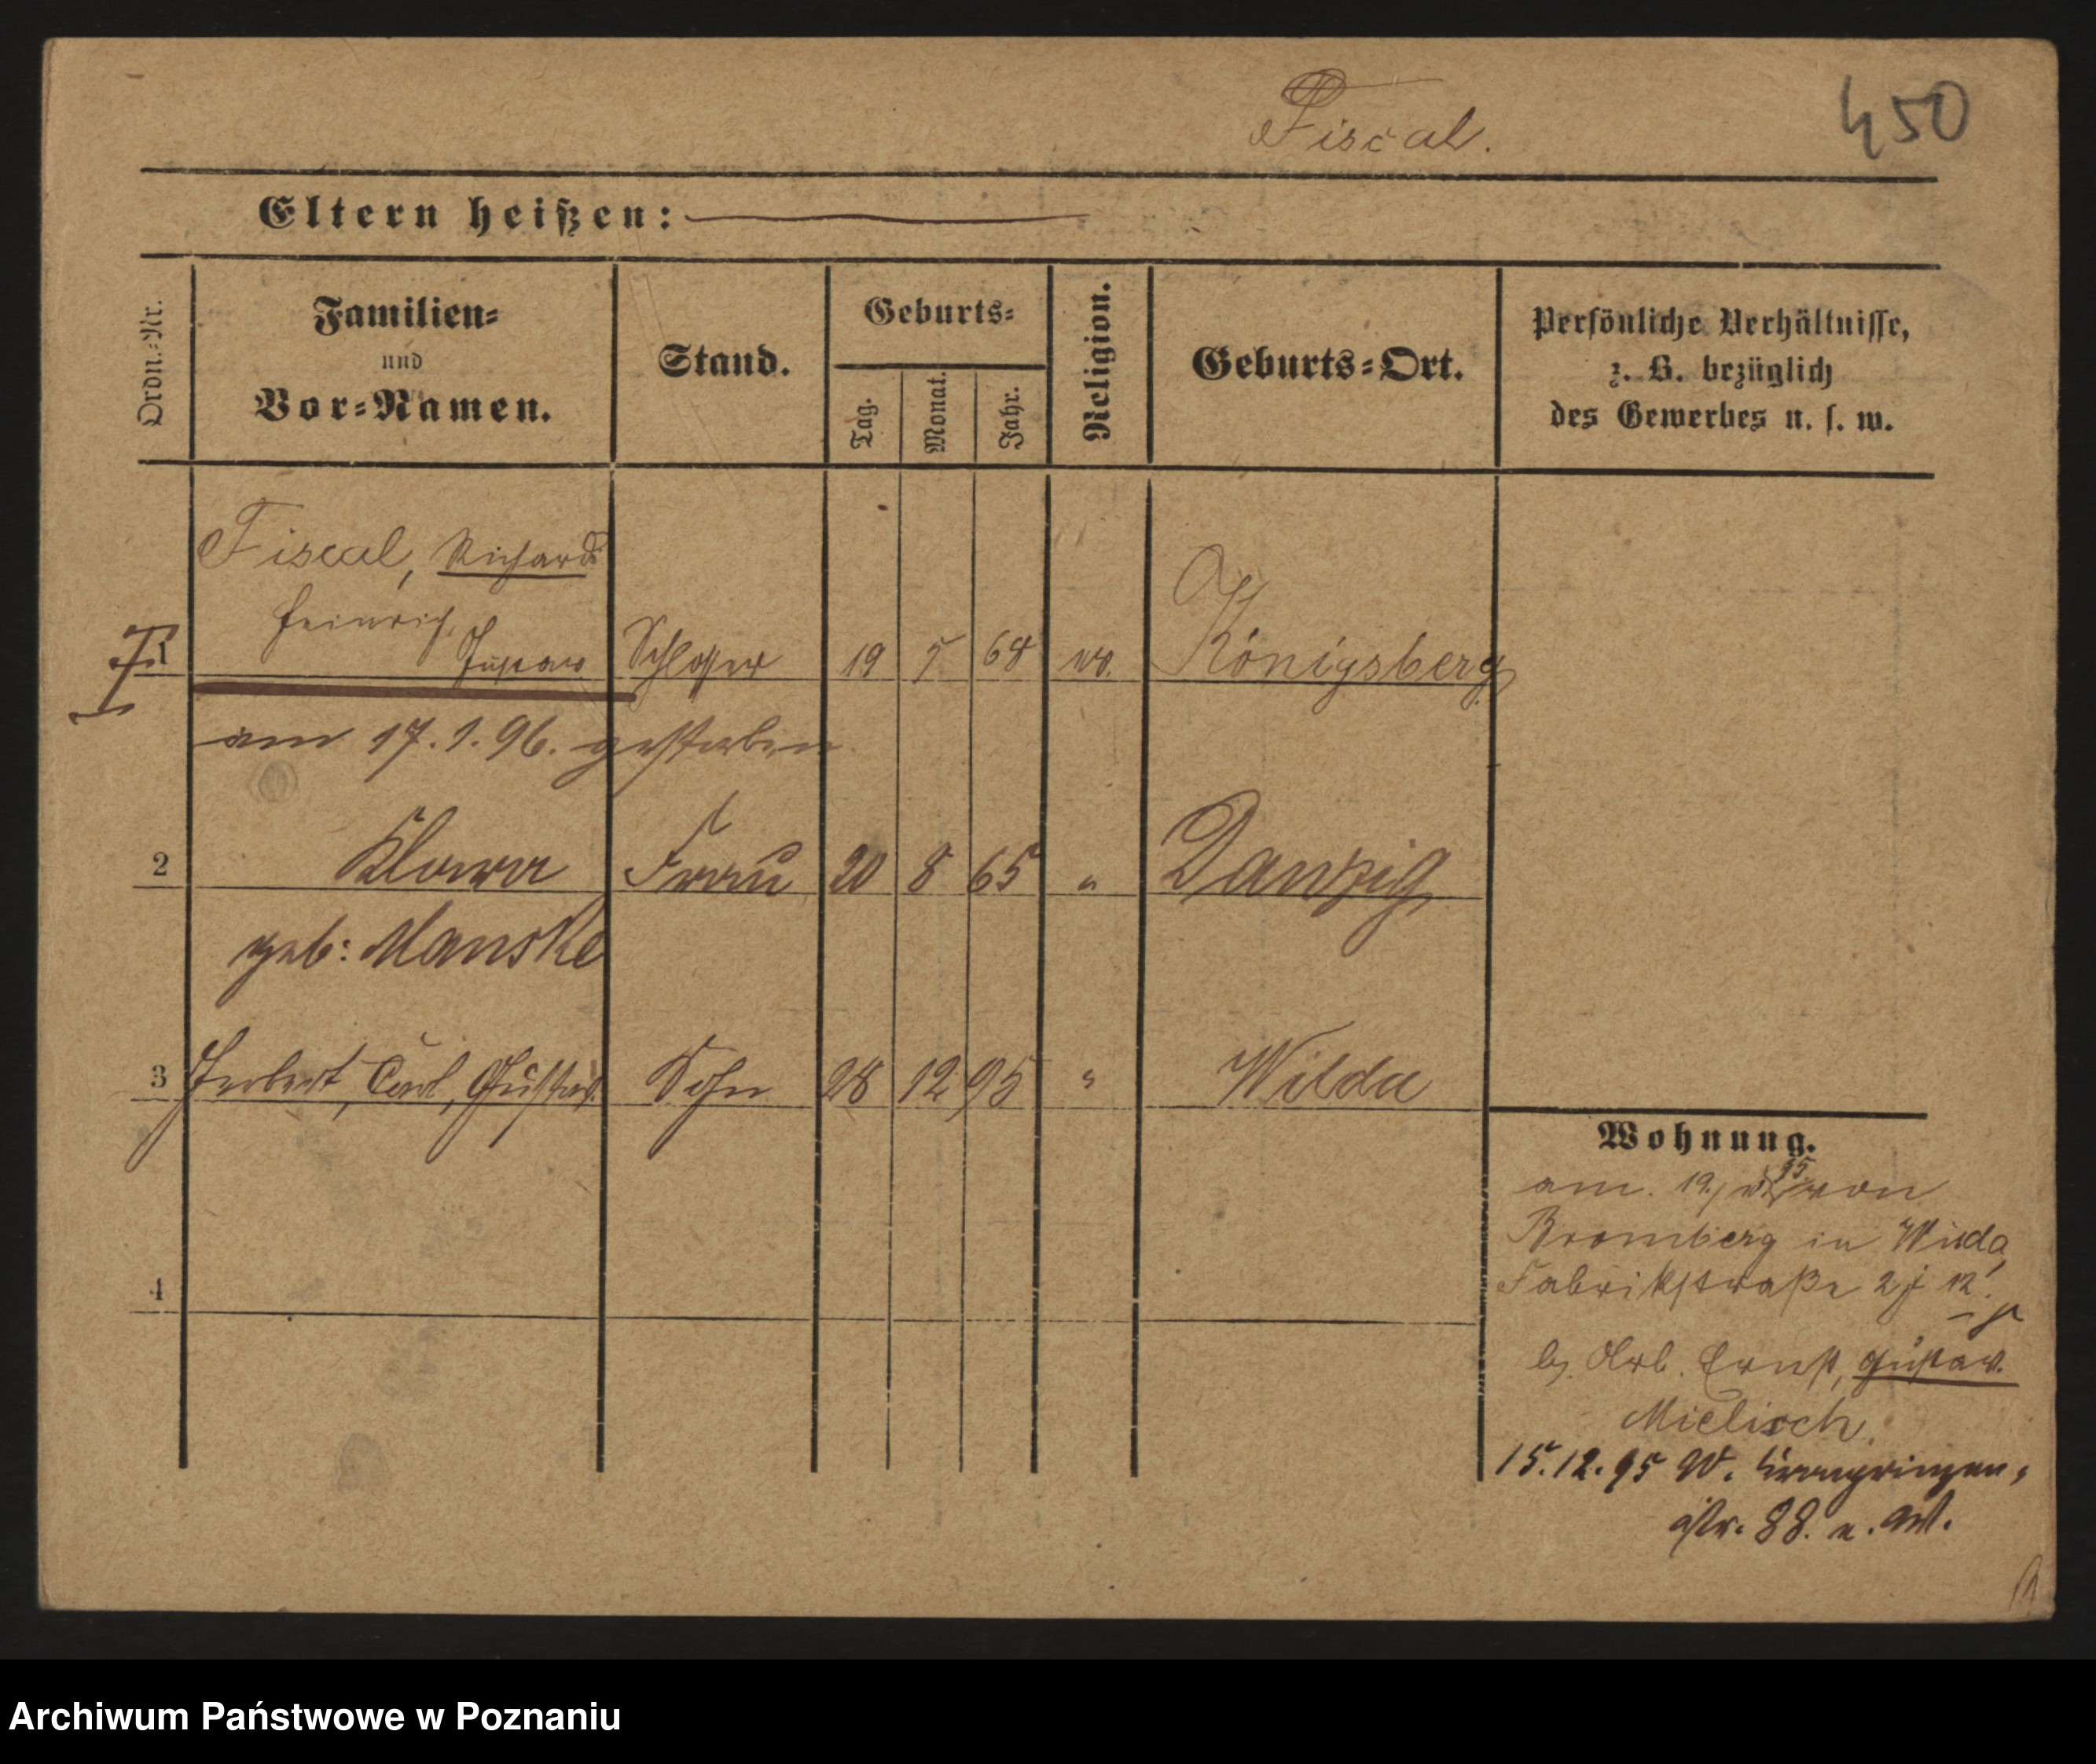 Fiscal.
450
Eltern heißen:
Ordn.=Nr.
Familien=
und
Vor=Namen.
Stand.
Geburts=
Tag.
Monat.
Jahr.
Religion.
Geburts=Ort.
Persönliche Verhältnisse,
z. B. bezüglich
des Gewerbes u. s. w.
Fiscal, Richard
Heinrich,
1 Gustav Schlosser 19 5 68 ev. Königsberg
am 17.1.96. gestorben
2 Klara Frau 20 8 65 " Danzig
geb: Manske
3 Herbert, Carl, Gustav. Sohn 28 12 95 " Wilda
4
Wohnung.
am 19. 95 von
Bromberg in Wilda,
Fabrikstraße 2
b. Arb. Ernst, Gustav.
Mielisch.
15.12.95 W. Kronprinzen=
str. 88.
Archiwum Państwowe w Poznaniu